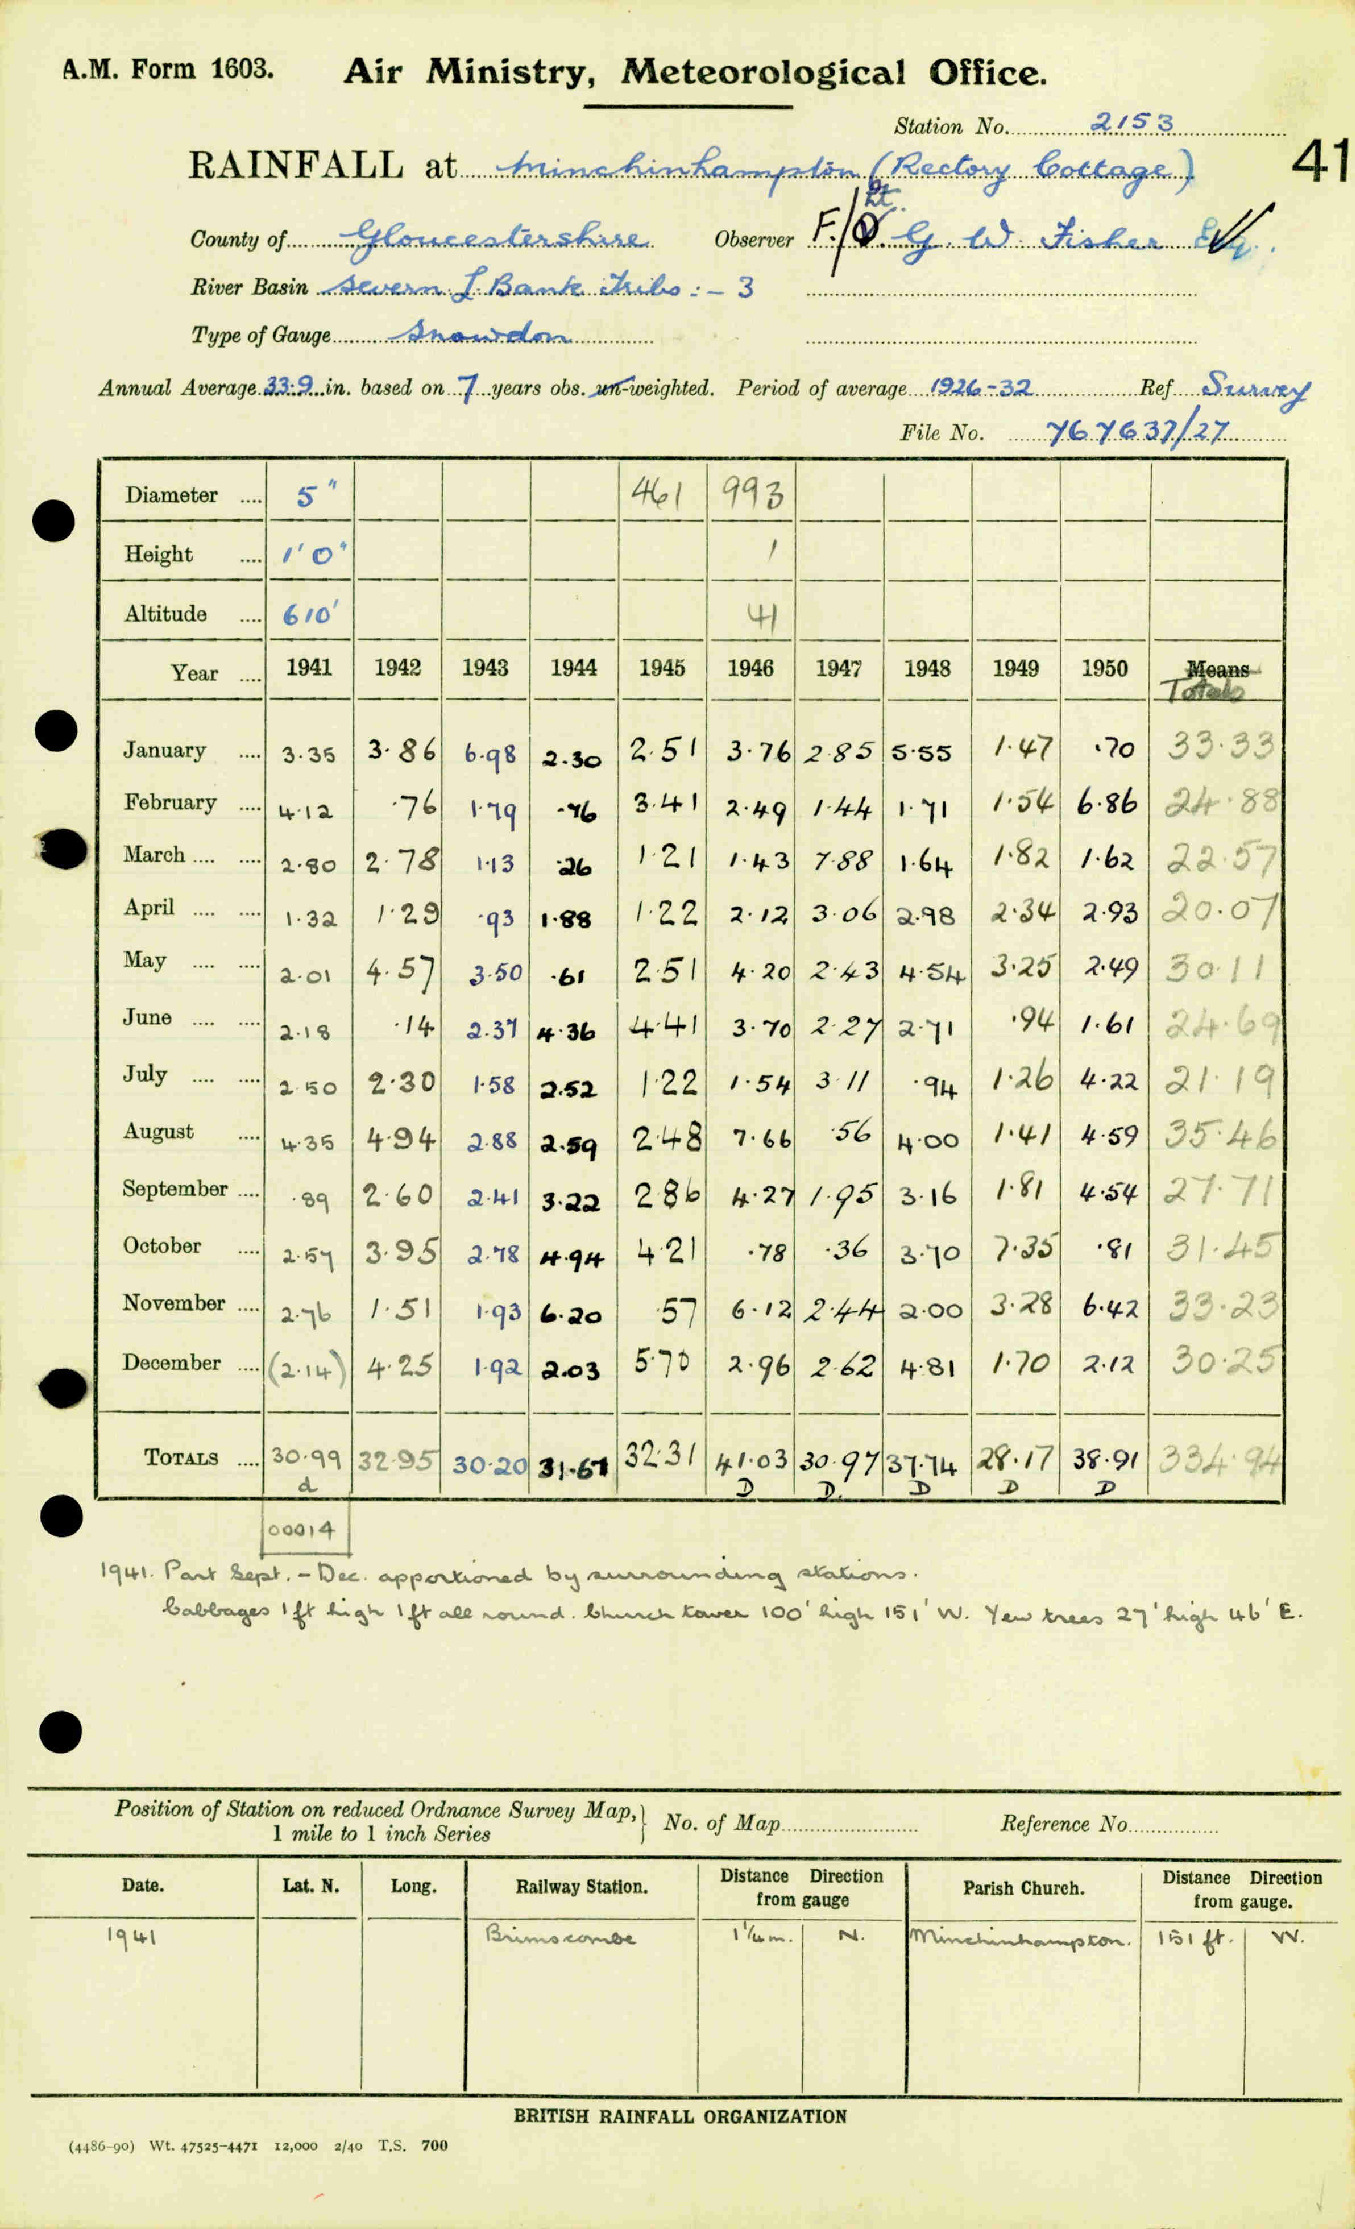 A.M. Form 1603. Air Ministry, Meteorological Office.
Station No. 2153
RAINFALL at Minchinhampton (Rectory Cottage) 41
Lt.
County of Gloucestershire Observer F./O. G. W. Fisher Esq.
River Basin Severn L. Bank Tribs :- 3
Type of Gauge Snowdon
Annual Average 33.9 in. based on 7 years obs. un-weighted. Period of average 1926-32 Ref Survey
File No. 767637/27
Diameter .... 5" 461 993
Height .... 1'0" 1
Altitude .... 610' 41
Year .... 1941 1942 1943 1944 1945 1946 1947 1948 1949 1950 Means
Totals
January .... 3.35 3.86 6.98 2.30 2.51 3.76 2.85 5.55 1.47 .70 33.33
February .... 4.12 .76 1.79 .76 3.41 2.49 1.44 1.71 1.54 6.86 24.88
March .... .... 2.80 2.78 1.13 .26 1.21 1.43 7.88 1.64 1.82 1.62 22.57
April .... .... 1.32 1.29 .93 1.88 1.22 2.12 3.06 2.98 2.34 2.93 20.07
May .... .... 2.01 4.57 3.50 .61 2.51 4.20 2.43 4.54 3.25 2.49 30.11
June .... .... 2.18 .14 2.37 4.36 4.41 3.70 2.27 2.71 .94 1.61 24.69
July .... .... 2.50 2.30 1.58 2.52 1.22 1.54 3.11 .94 1.26 4.22 21.19
August .... 4.35 4.94 2.88 2.59 2.48 7.66 .56 4.00 1.41 4.59 35.46
September .... .89 2.60 2.41 3.22 2.86 4.27 1.95 3.16 1.81 4.54 27.71
October .... 2.57 3.95 2.78 4.94 4.21 .78 .36 3.70 7.35 .81 31.45
November .... 2.76 1.51 1.93 6.20 .57 6.12 2.44 2.00 3.28 6.42 33.23
December .... (2.14) 4.25 1.92 2.03 5.70 2.96 2.62 4.81 1.70 2.12 30.25
TOTALS .... 30.99 32.95 30.20 31.67 32.31 41.03 30.97 37.74 28.17 38.91 334.94
d D D. D D D
00014
1941. Part Sept. - Dec. apportioned by surrounding stations.
Cabbages 1ft high 1ft all round. Church tower 100' high 151' W. Yew trees 27' high 46' E.
Position of Station on reduced Ordnance Survey Map, } No. of Map Reference No.
1 mile to 1 inch Series
Date. Lat. N. Long. Railway Station. Distance from gauge Direction Parish Church. Distance from gauge. Direction
1941 Brimscombe 1¼ m. N. Minchinhampton. 151 ft. W.
BRITISH RAINFALL ORGANIZATION
(4486-90) Wt. 47525-4471 12,000 2/40 T.S. 700